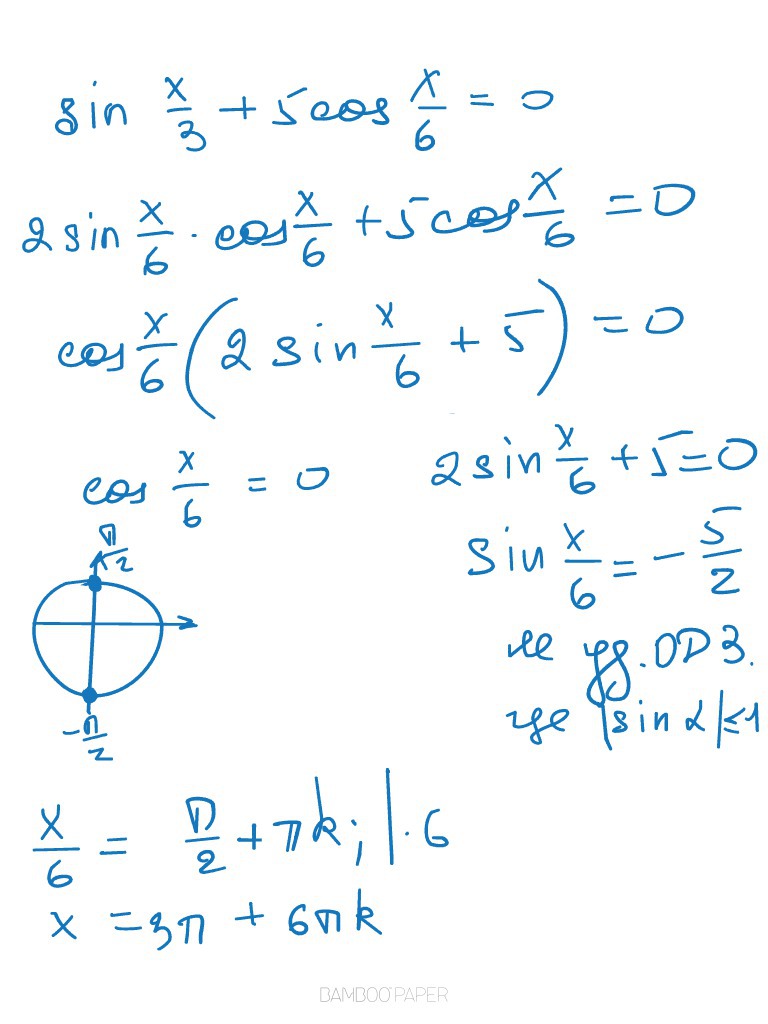 sin x/3 + 5cos x/6 = 0
2 sin x/6 · cos x/6 + 5 cos x/6 = 0
cos x/6 (2 sin x/6 + 5) = 0
cos x/6 = 0
π/2
-π/2
2 sin x/6 + 5 = 0
sin x/6 = - 5/2
не уд. ОДЗ.
где |sin α| ≤ 1
x/6 = π/2 + πk; | · 6
x = 3π + 6πk
BAMBOO PAPER